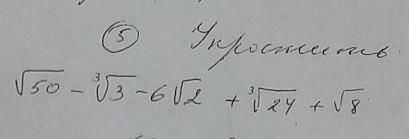 ⑤ Упростить
√50 - ∛3 - 6√2 + ∛24 + √8